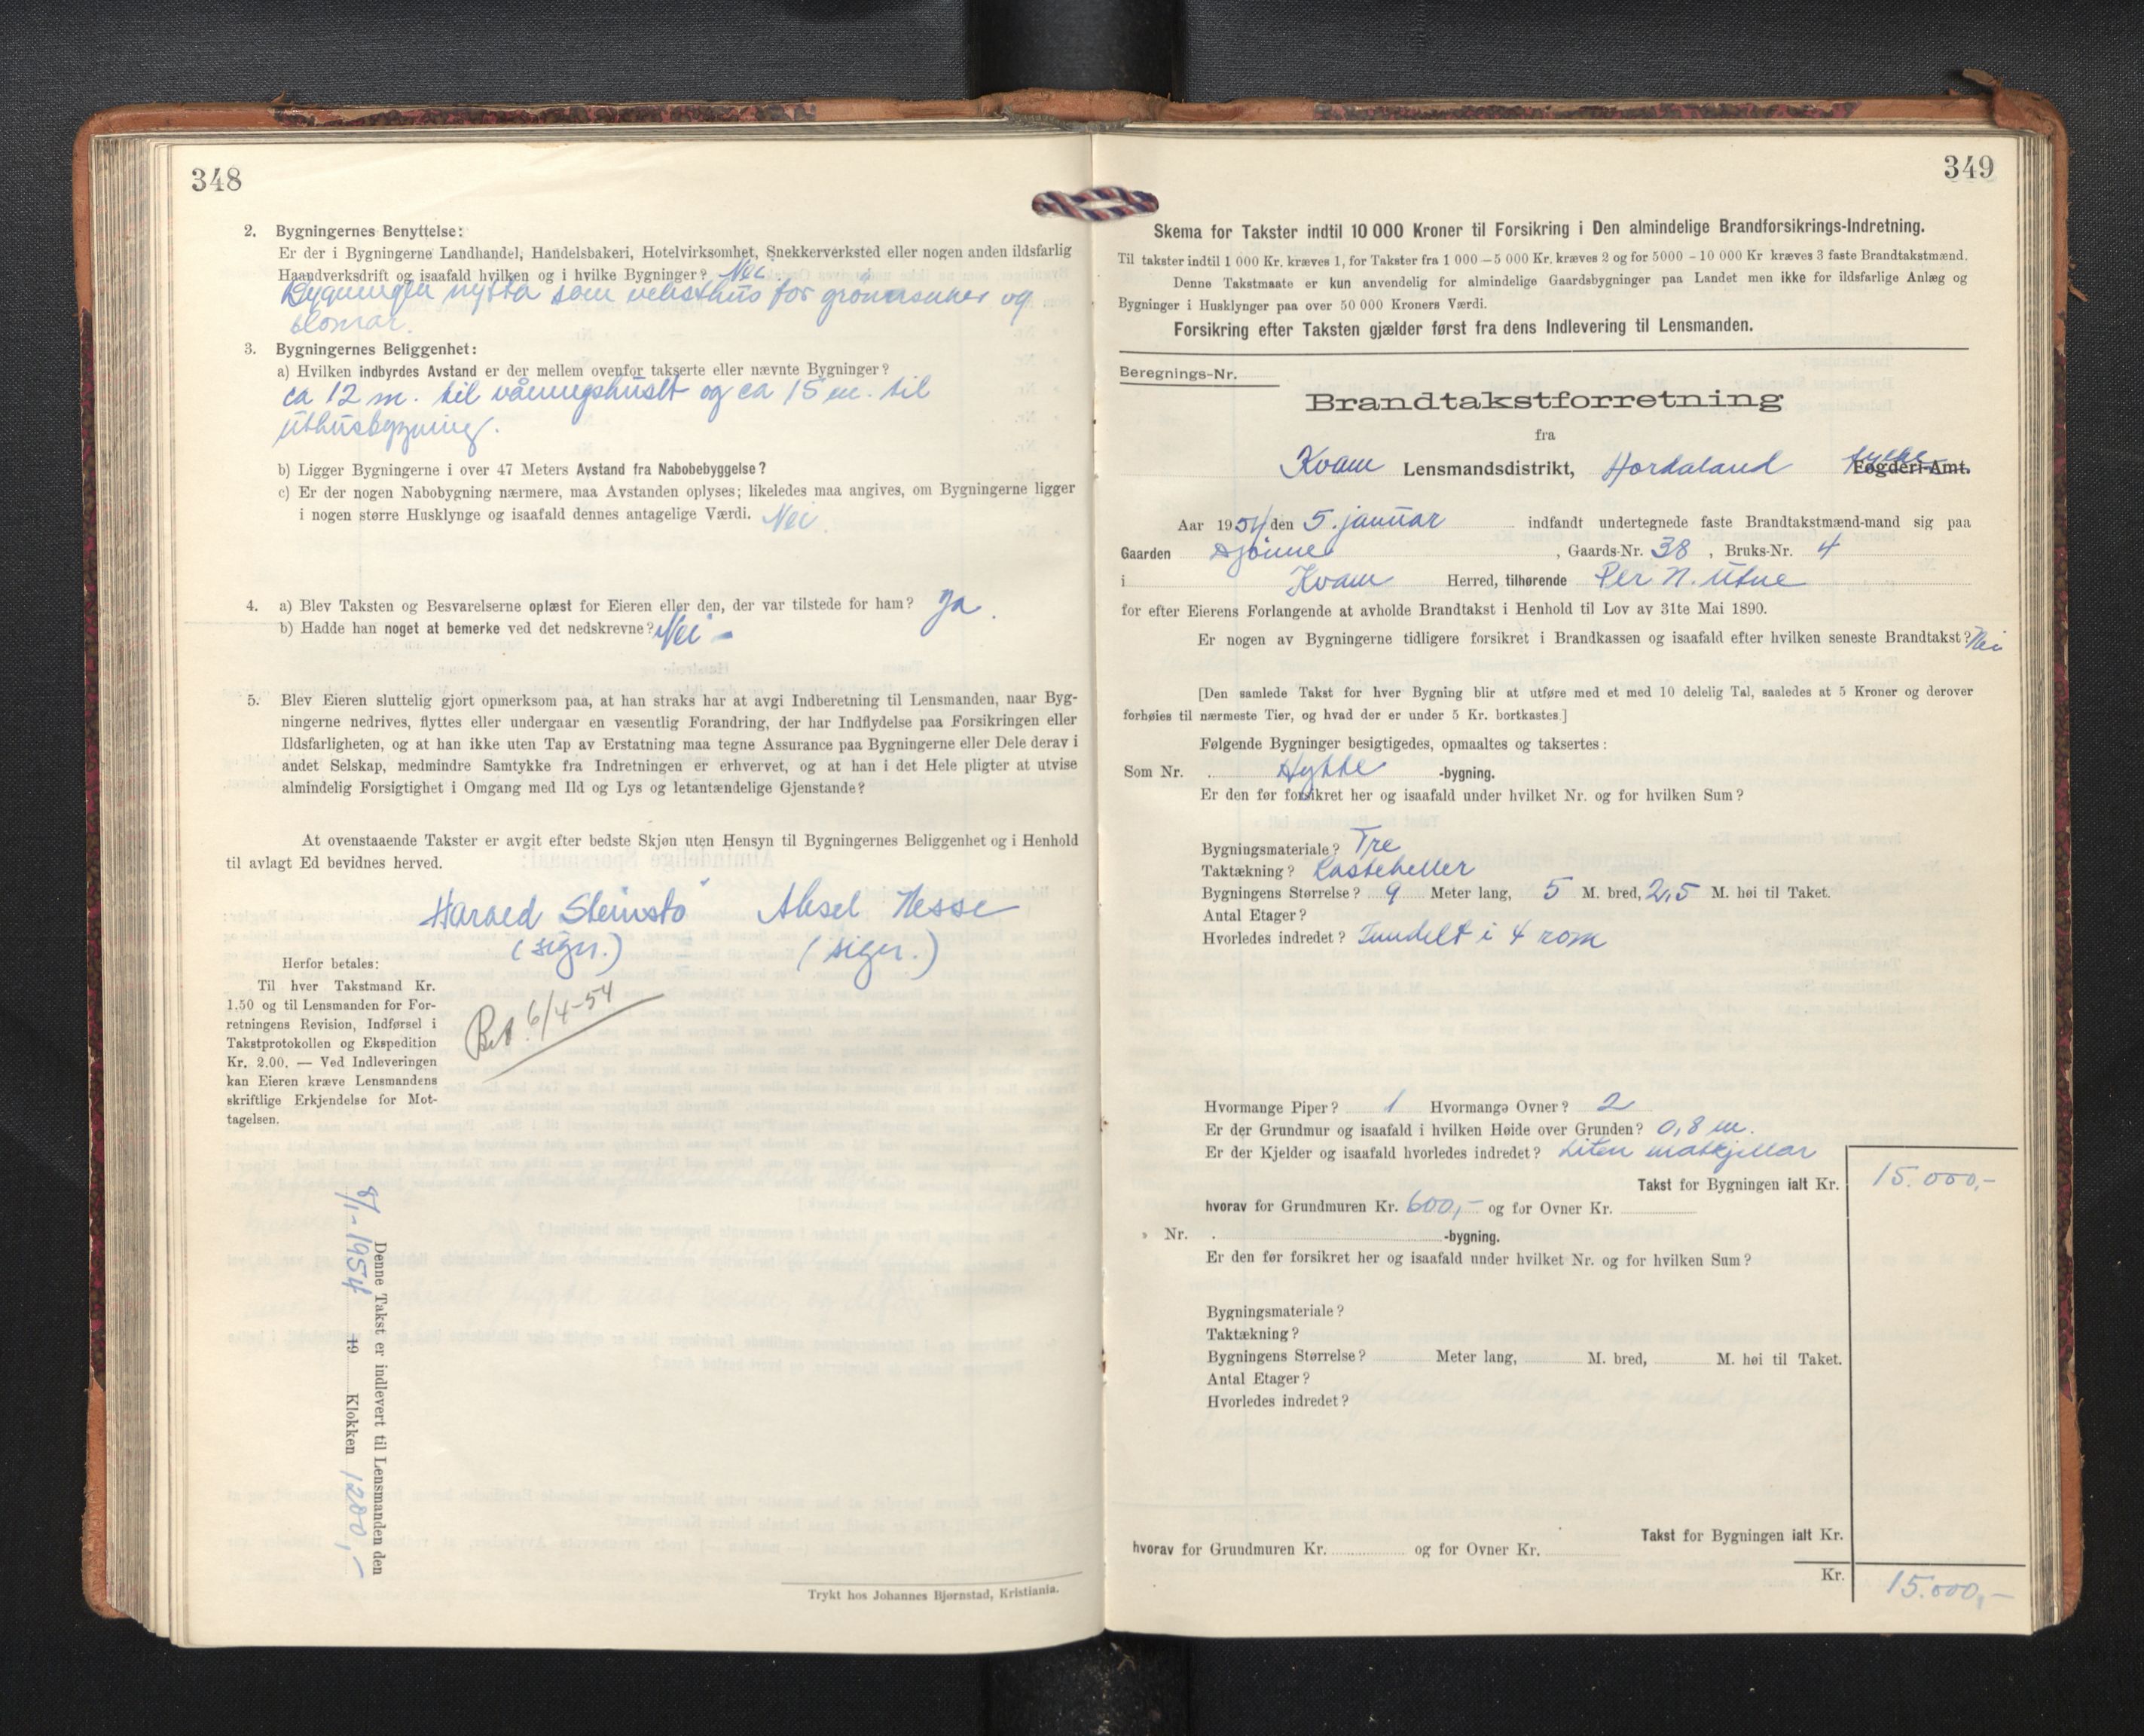 348
2. Bygningernes Benyttelse:
Er der i Bygningerne Landhandel, Handelsbakeri, Hotelvirksomhet, Snekkerverksted eller nogen anden ildsfarlig
Haandverksdrift og isaafald hvilken og i hvilke Bygninger? Nei
Bygningen nytta som veksthus for grönsaker og
blomar.
3. Bygningernes Beliggenhet:
a) Hvilken indbyrdes Avstand er der mellem ovenfor takserte eller nævnte Bygninger?
ca 12 m. til våningshuset og ca 15 m. til
uthusbygning.
b) Ligger Bygningerne i over 47 Meters Avstand fra Nabobebyggelse?
c) Er der nogen Nabobygning nærmere, maa Avstanden oplyses; likeledes maa angives, om Bygningerne ligger
i nogen større Husklynge og isaafald dennes antagelige Værdi. Nei
4. a) Blev Taksten og Besvarelserne oplæst for Eieren eller den, der var tilstede for ham? Ja.
b) Hadde han noget at bemerke ved det nedskrevne? Nei -
5. Blev Eieren sluttelig gjort opmerksom paa, at han straks har at avgi Indberetning til Lensmanden, naar Byg-
ningerne nedrives, flyttes eller undergaar en væsentlig Forandring, der har Indflydelse paa Forsikringen eller
Ildsfarligheten, og at han ikke uten Tap av Erstatning maa tegne Assurance paa Bygningerne eller Dele derav i
andet Selskap, medmindre Samtykke fra Indretningen er erhvervet, og at han i det Hele pligter at utvise
almindelig Forsigtighet i Omgang med Ild og Lys og letantændelige Gjenstande?
At ovenstaaende Takster er avgit efter bedste Skjøn uten Hensyn til Bygningernes Beliggenhet og i Henhold
til avlagt Ed bevidnes herved.
Harald Steinstö Aksel Nesse
(sign.) (sign.)
Herfor betales:
Til hver Takstmand Kr.
1.50 og til Lensmanden for For-
retningens Revision, Indførsel i
Takstprotokollen og Ekspedition
Kr. 2.00. — Ved Indleveringen
kan Eieren kræve Lensmandens
skriftlige Erkjendelse for Mot-
tagelsen.
Bet. 6/4-54
Denne Takst er indlevert til Lensmanden den
8/1-1954 19 Klokken 1200,-
Trykt hos Johannes Bjørnstad, Kristiania.
349
Skema for Takster indtil 10 000 Kroner til Forsikring i Den almindelige Brandforsikrings-Indretning.
Til takster indtil 1 000 Kr. kræves 1, for Takster fra 1 000 – 5 000 Kr. kræves 2 og for 5000 – 10 000 Kr kræves 3 faste Brandtakstmænd.
Denne Takstmaate er kun anvendelig for almindelige Gaardsbygninger paa Landet men ikke for ildsfarlige Anlæg og
Bygninger i Husklynger paa over 50 000 Kroners Værdi.
Forsikring efter Taksten gjælder først fra dens Indlevering til Lensmanden.
Beregnings-Nr.
Brandtakstforretning
fra
Kvam Lensmandsdistrikt, Hordaland fylke Fogderi-Amt.
Aar 1954 den 5. januar indfandt undertegnede faste Brandtakstmænd-mand sig paa
Gaarden , Gaards-Nr. 38 , Bruks-Nr. 4
i Kvam Herred, tilhørende Per N. Utne
for efter Eierens Forlangende at avholde Brandtakst i Henhold til Lov av 31te Mai 1890.
Er nogen av Bygningerne tidligere forsikret i Brandkassen og isaafald efter hvilken seneste Brandtakst? Nei
[Den samlede Takst for hver Bygning blir at utføre med et med 10 delelig Tal, saaledes at 5 Kroner og derover
forhøies til nærmeste Tier, og hvad der er under 5 Kr. bortkastes]
Følgende Bygninger besigtigedes, opmaaltes og taksertes:
Som Nr. Hytte -bygning.
Er den før forsikret her og isaafald under hvilket Nr. og for hvilken Sum?
Bygningsmateriale? Tre
Taktækning? Lasteheller
Bygningens Størrelse? 9 Meter lang, 5 M. bred, 2,5 M. høi til Taket.
Antal Etager?
Hvorledes indredet? Inndelt i 4 rom
Hvormange Piper? 1 Hvormange Ovner? 2
Er der Grundmur og isaafald i hvilken Høide over Grunden? 0,8 m.
Er der Kjelder og isaafald hvorledes indredet? Liten matkjellar
Takst for Bygningen ialt Kr. 15.000,-
hvorav for Grundmuren Kr. 600,- og for Ovner Kr.
» Nr. -bygning.
Er den før forsikret her og isaafald under hvilket Nr. og for hvilken Sum?
Bygningsmateriale?
Taktækning?
Bygningens Størrelse? Meter lang, M. bred, M. høi til Taket.
Antal Etager?
Hvorledes indredet?
Takst for Bygningen ialt Kr.
hvorav for Grundmuren Kr. og for Ovner Kr.
Kr. 15.000,-